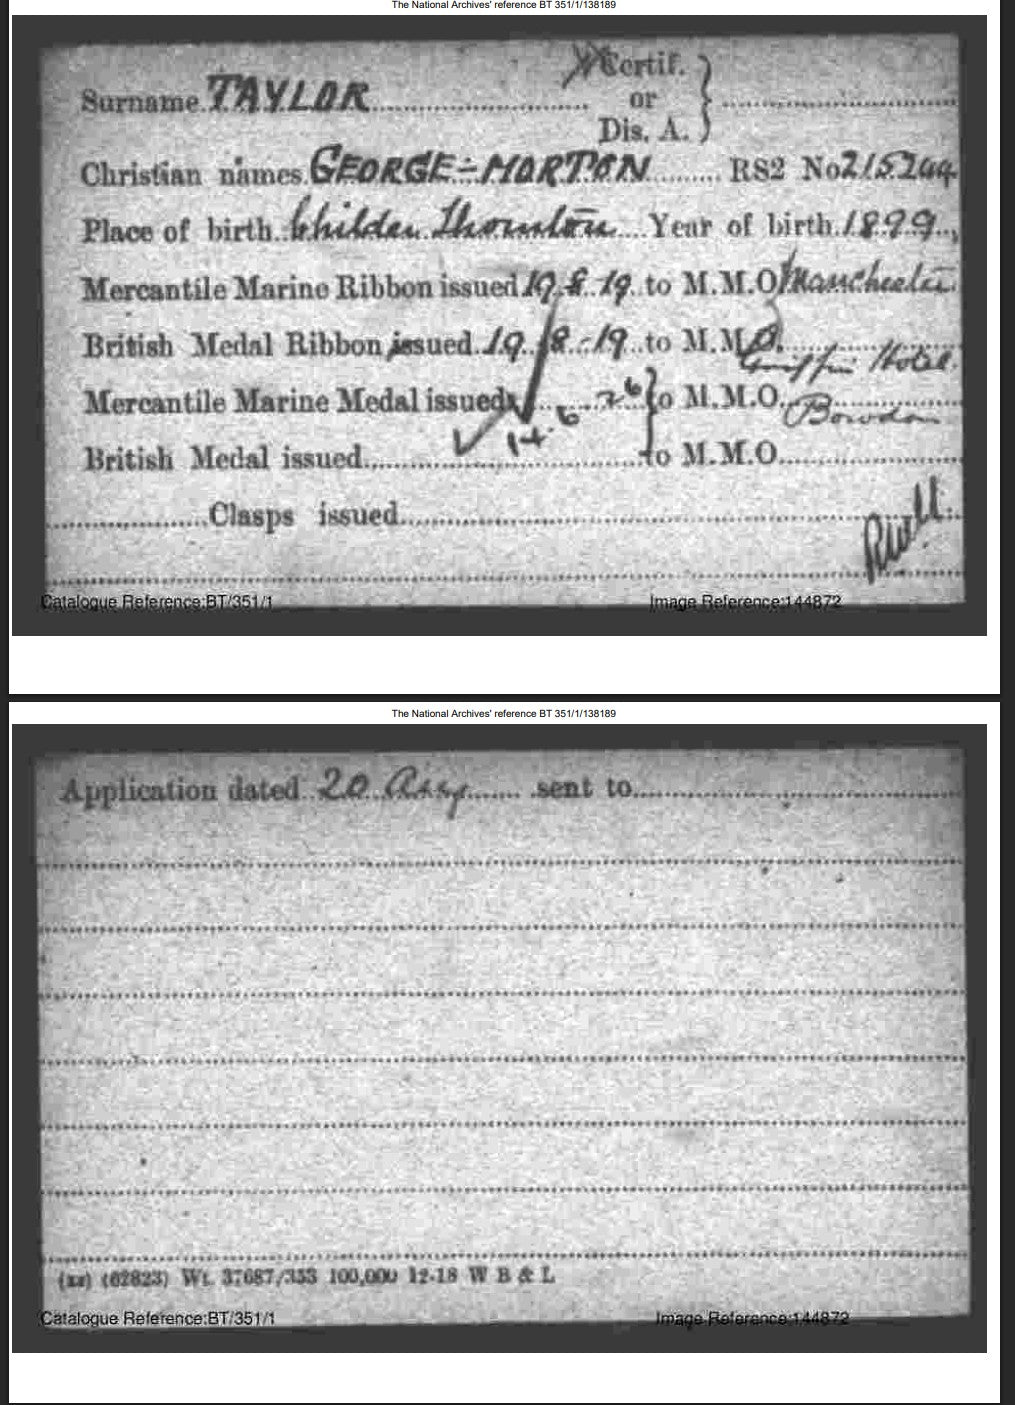 The National Archives' reference BT 351/1/138189
Certif.
Surname. TAYLOR or
Dis. A.
Christian names. GEORGE=MORTON RS2 No 215244
Place of birth. Childer Thornton Year of birth. 1899
Mercantile Marine Ribbon issued 19.8.19. to M.M.O. Manchester
British Medal Ribbon issued. 19.8.-19. to M.M.O.
Griffin Hotel.
Mercantile Marine Medal issued 14.6.26 to M.M.O. Bowdon
British Medal issued to M.M.O.
Clasps issued
Catalogue Reference:BT/351/1 Image Reference:144872
The National Archives' reference BT 351/1/138189
Application dated 20 sent to
(62823) Wt. 37687/353 100,000 12-18 W B & L
Catalogue Reference:BT/351/1 Image Reference:144872